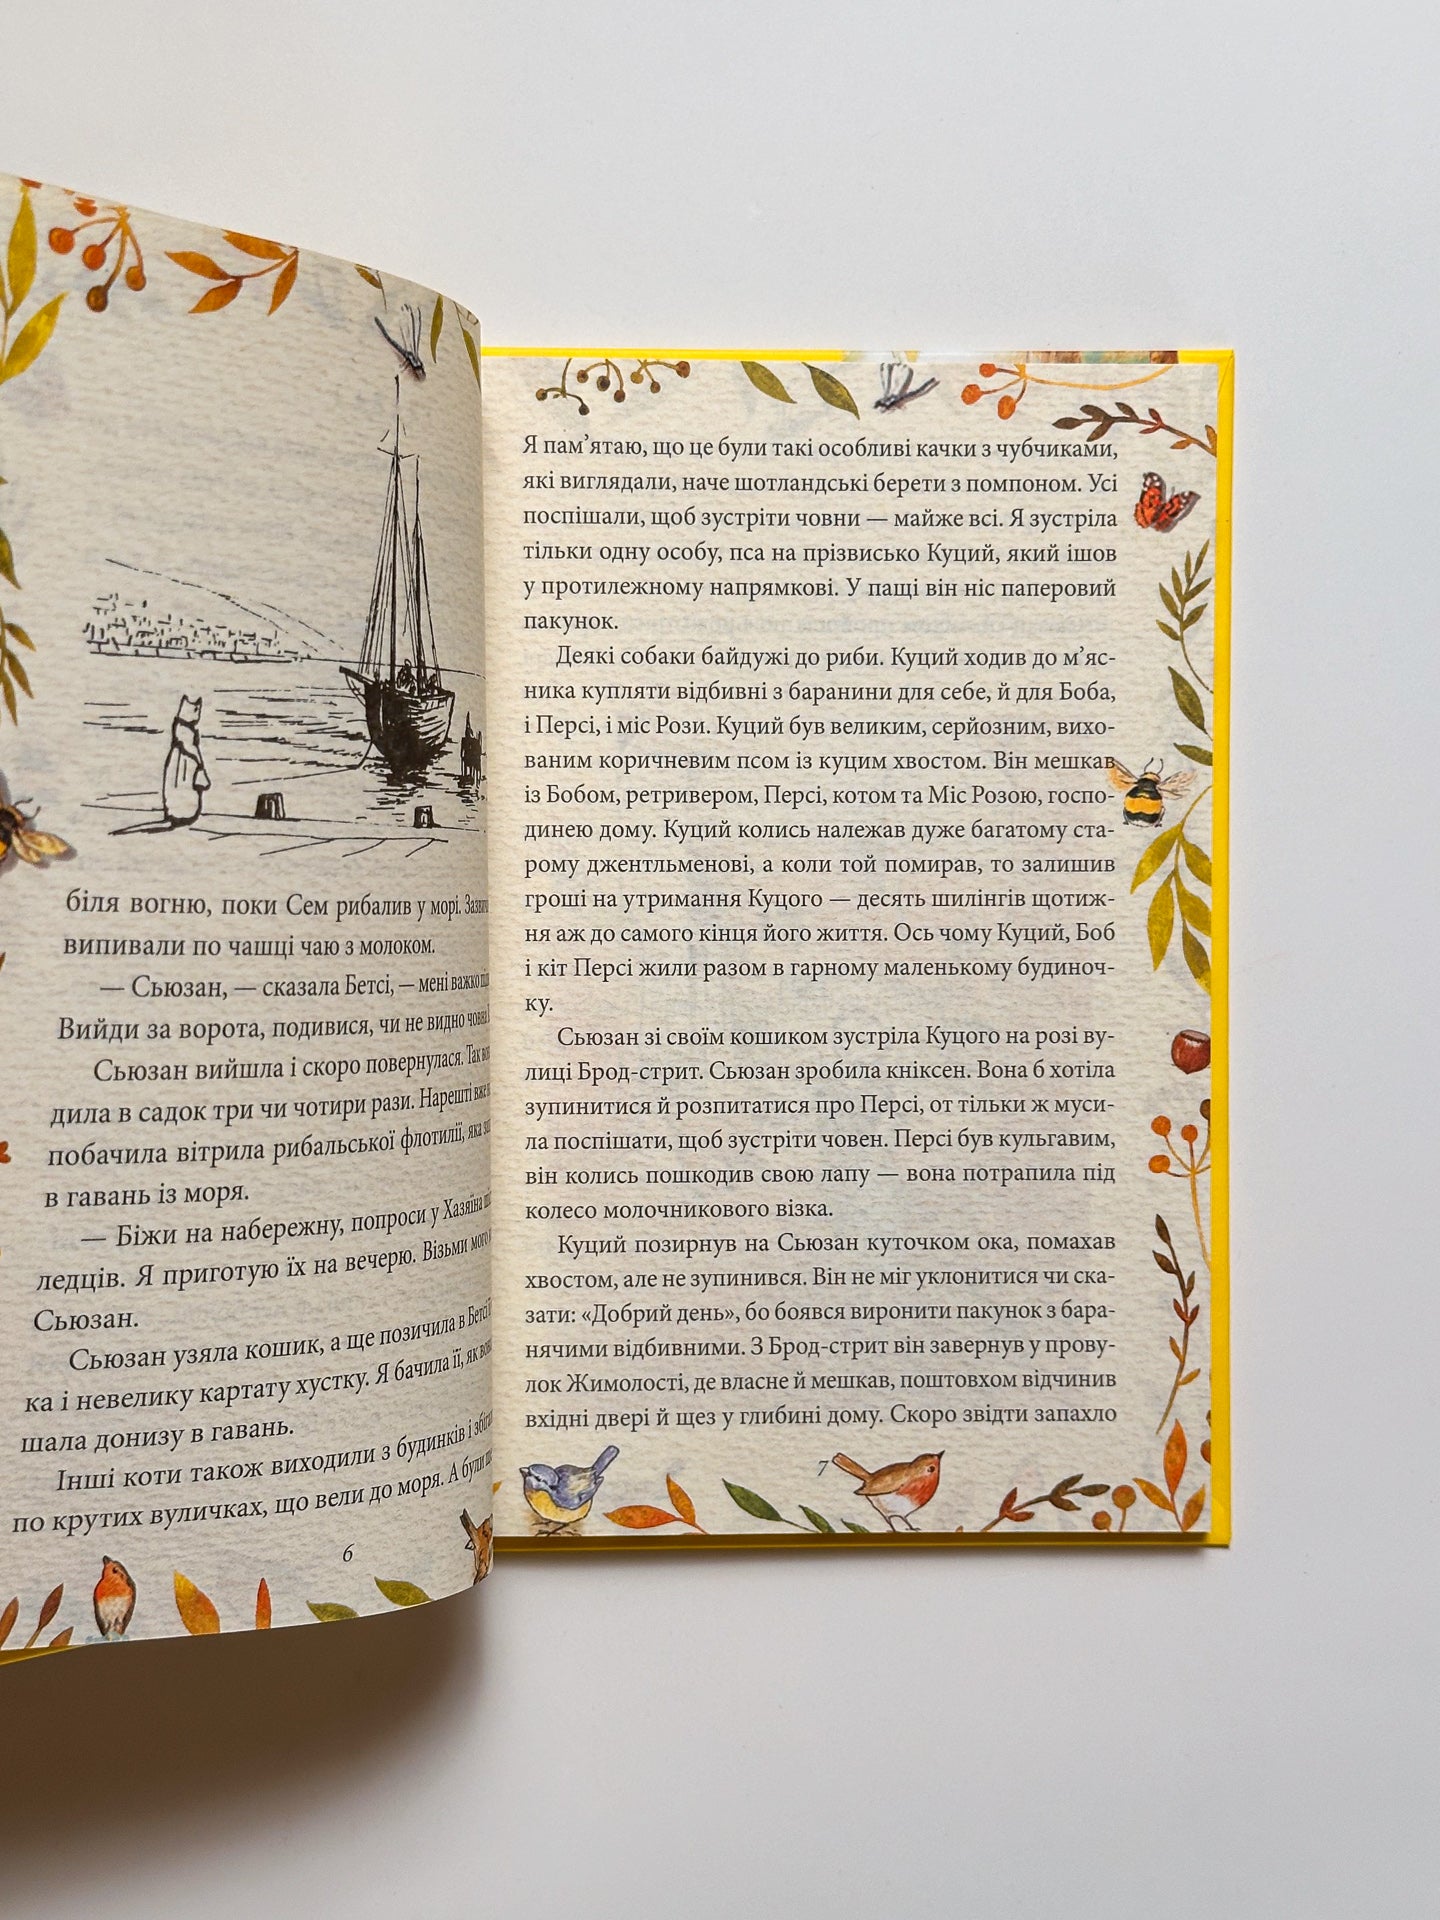 біля вогню, поки Сем рибалив у морі.
випивали по чашці чаю з молоком.
— Сьюзан, — сказала Бетсі, — мені важко
Вийди за ворота, подивися, чи не видно човна
Сьюзан вийшла і скоро повернулася. Так
дила в садок три чи чотири рази. Нарешті вже
побачила вітрила рибальської флотилії, яка
в гавань із моря.
— Біжи на набережну, попроси у Хазяїна
ледців. Я приготую їх на вечерю. Візьми мого
Сьюзан.
Сьюзан узяла кошик, а ще позичила в Бетсі
ка і невелику картату хустку. Я бачила її, як
шала донизу в гавань.
Інші коти також виходили з будинків і
по крутих вуличках, що вели до моря. А були
6
Я пам’ятаю, що це були такі особливі качки з чубчиками,
які виглядали, наче шотландські берети з помпоном. Усі
поспішали, щоб зустріти човни — майже всі. Я зустріла
тільки одну особу, пса на прізвисько Куций, який ішов
у протилежному напрямкові. У пащі він ніс паперовий
пакунок.
Деякі собаки байдужі до риби. Куций ходив до м’яс-
ника купляти відбивні з баранини для себе, й для Боба,
і Персі, і міс Рози. Куций був великим, серйозним, вихо-
ваним коричневим псом із куцим хвостом. Він мешкав
із Бобом, ретривером, Персі, котом та Міс Розою, госпо-
динею дому. Куций колись належав дуже багатому ста-
рому джентльменові, а коли той помирав, то залишив
гроші на утримання Куцого — десять шилінгів щотиж-
ня аж до самого кінця його життя. Ось чому Куций, Боб
і кіт Персі жили разом в гарному маленькому будиноч-
ку.
Сьюзан зі своїм кошиком зустріла Куцого на розі ву-
лиці Брод-стрит. Сьюзан зробила кніксен. Вона б хотіла
зупинитися й розпитатися про Персі, от тільки ж муси-
ла поспішати, щоб зустріти човен. Персі був кульгавим,
він колись пошкодив свою лапу — вона потрапила під
колесо молочникового візка.
Куций позирнув на Сьюзан куточком ока, помахав
хвостом, але не зупинився. Він не міг уклонитися чи ска-
зати: «Добрий день», бо боявся виронити пакунок з бара-
нячими відбивними. З Брод-стрит він завернув у прову-
лок Жимолості, де власне й мешкав, поштовхом відчинив
вхідні двері й щез у глибині дому. Скоро звідти запахло
7